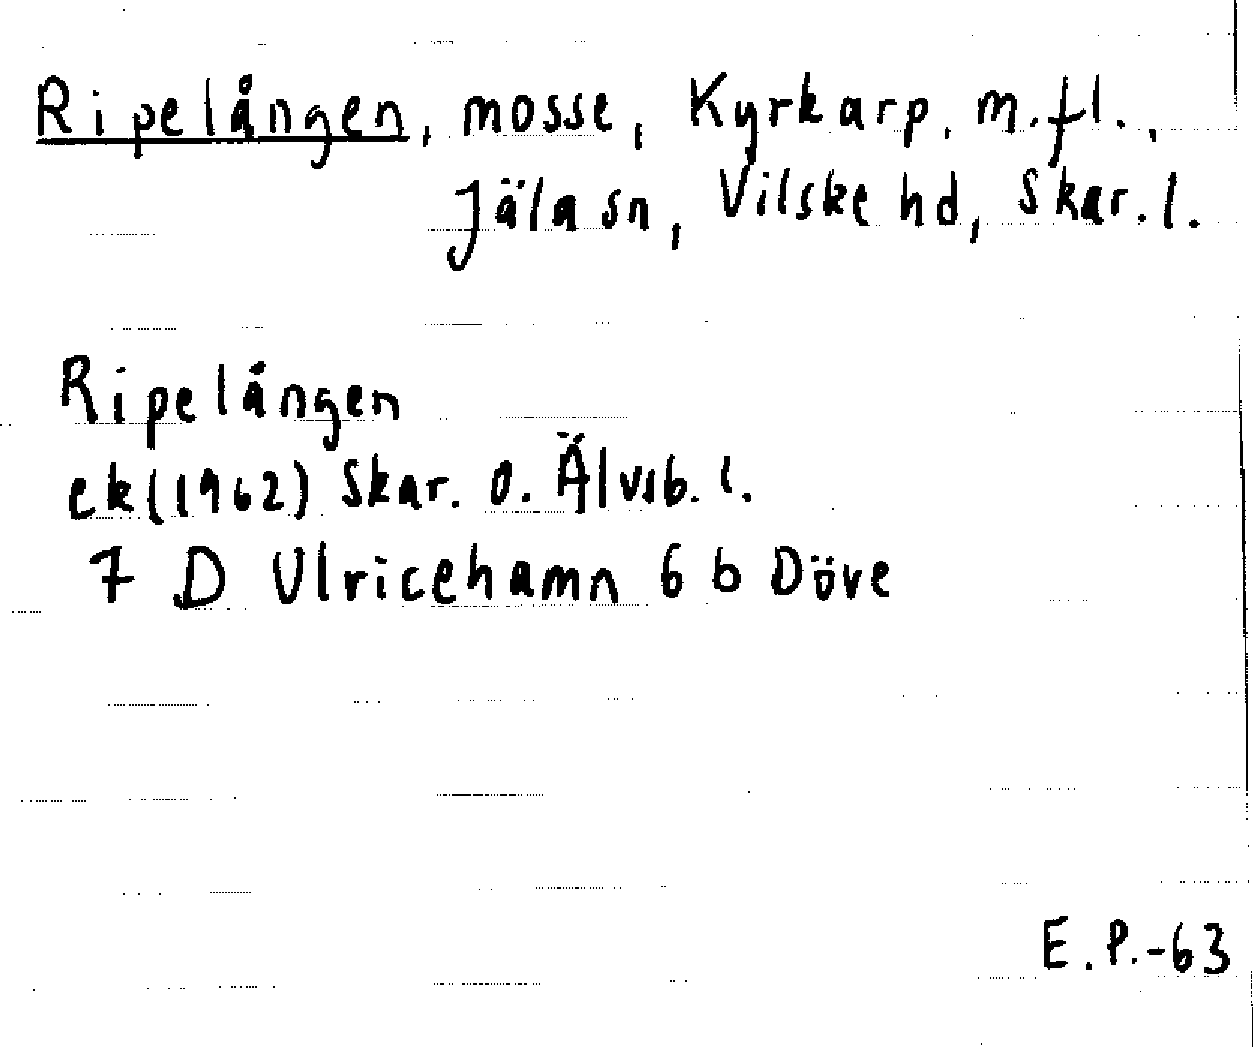 Ripelången, mosse, Kyrkarp. m.fl.,
Jäla sn, Vilske hd, Skar. l.
Ripelången
ek (1962) Skar. o. Älvsb. l.
7 D Ulricehamn 6 b Döve
E.P.-63